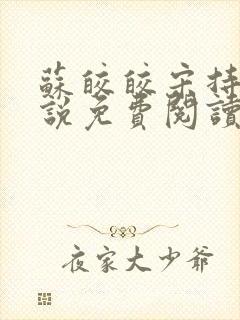 蘇皎皎宋持
說免費閱讀
夜家大少爺